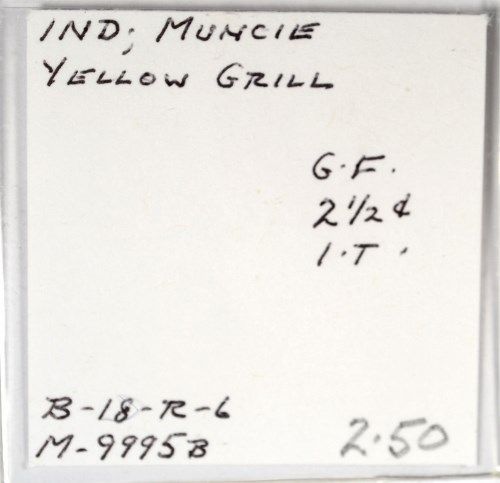 IND; MUNCIE
YELLOW GRILL
G.F.
2 1/2 ¢
I.T.
B-18-R-6
M-9995B
2.50